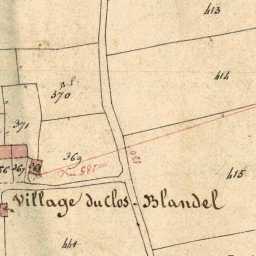 413
414
p.l.
370
371
369
367
415
Village du Clos-Blandel
444